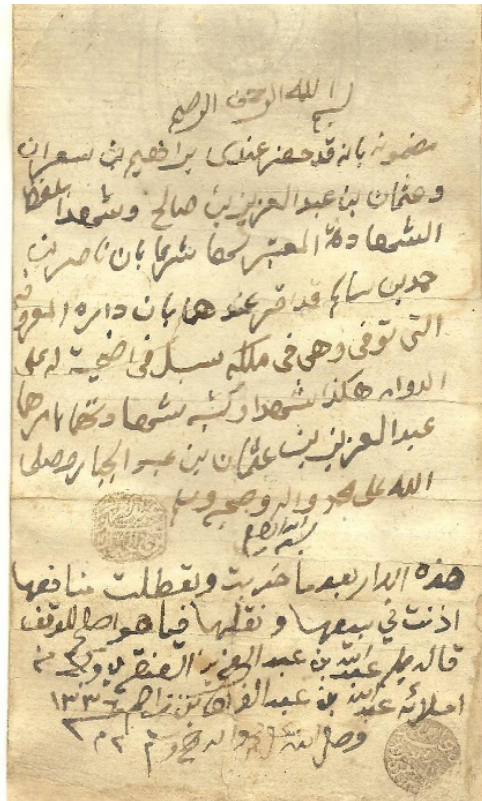 بسم الله الرحمن الرحيم
مضمونه بانه قد حضر عندي براهيم بن سعران
وعثمان بن عبد العزيز بن صالح وشهدا بلفظ
الشهادة المعتبر لحضا شرعا بان ناصر بن
حمد بن سالم قد اقر عندهما بان داره المعروفه
التي توفي وهي في ملكه سبل في اضحية له على
الدوام هكذا شهدا وكتبه شهادتهما بامرهما
عبد العزيز بن عثمان بن عبد الجبار وصلى
الله على محمد واله وصحبه وسلم
بسم الله الرحمن الرحيم
هذه الدار بعد ما خربت وتعطلت منافعها
اذنت في بيعها ونقلها فيما هو اصلح للوقف
قاله ممليه عبد الله بن عبد العزيز العنقري وكتبه من
املائه عبد الله بن عبد الوهاب بن زاحم ١٣٣٦
وصلى الله على محمد واله وصحبه وسلم